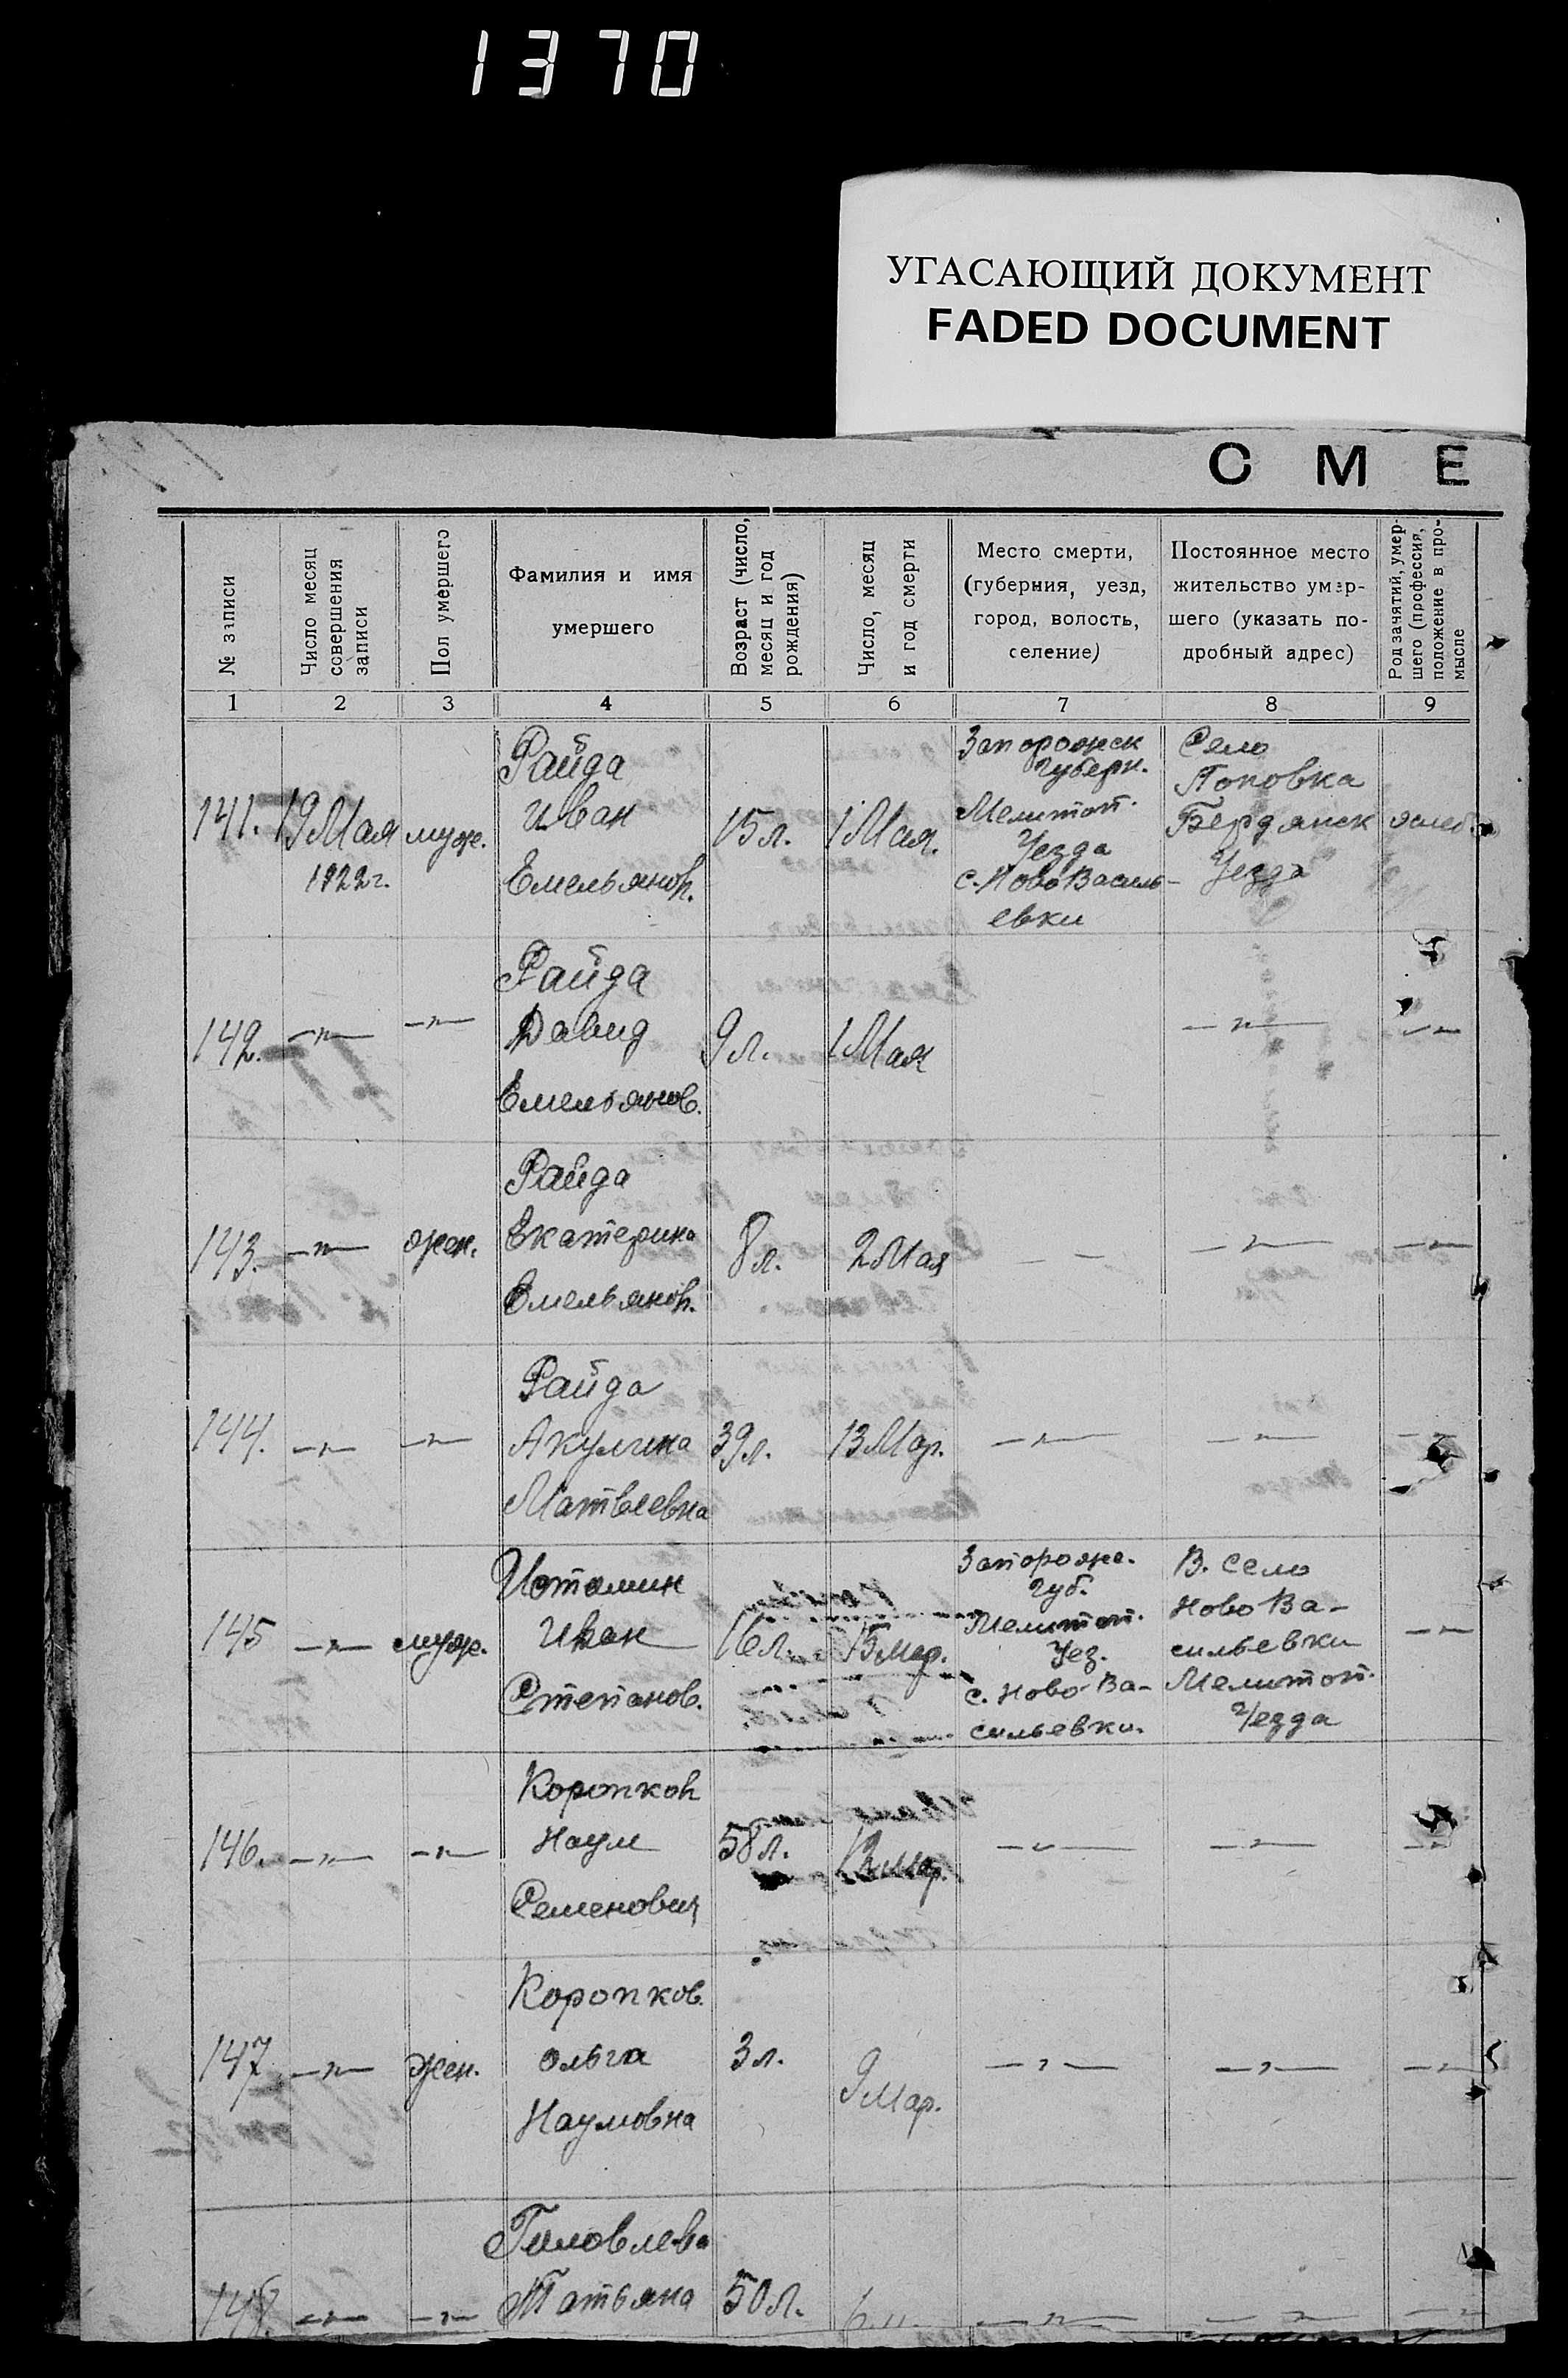 1370
УГАСАЮЩИЙ ДОКУМЕНТ
FADED DOCUMENT
С М Е
№ записи
Число месяц
совершения
записи
Пол умершего
Фамилия и имя
умершего
Возраст (число,
месяц и год
рождения)
Число, месяц
и год смерти
Место смерти,
(губерния, уезд,
город, волость,
селение)
Постоянное место
жительство умер-
шего (указать по-
дробный адрес)
Род занятий, умер-
шего (профессия,
положение в про-
мысле
1 2 3 4 5 6 7 8 9
141.
19 Мая
1922 г.
муж.
Райда
Иван
Емельянов.
15 л.
1 Мая.
Запорожск
Губерн.
Мелитоп.
Уезда
с. Ново Василь-
евки
Село
Поповка
Бердянск
Уезда
142.
—"—
—"—
Райда
Давид
Емельянов.
9 л.
1 Мая
—"—
—"—
143.
—"—
жен.
Райда
Екатерина
Емельянов.
8 л.
2 Мая
—
—"—
—"—
144.
—"—
—"—
Райда
Акулина
Матвеевна
39 л.
13 Мар.
—"—
—"—
145
—"—
муж.
Иван
Степанов.
16 л.
15 мар.
Запорож.
Губ.
Мелитоп.
Уез.
с. Ново-Ва-
сильевки.
В. Село
Ново Ва-
сильевки
Мелитоп.
Уезда
—"—
146.
—"—
—"—
Коропков
Наум
Семенович
58 л.
13 мар.
—"—
—"—
—"—
147
—"—
жен.
Коропков.
Ольга
Наумовна
3 л.
9 Мар.
—"—
—"—
—"—
148.
—"—
—"—
Татьяна
50 л.
—"—
—"—
—"—